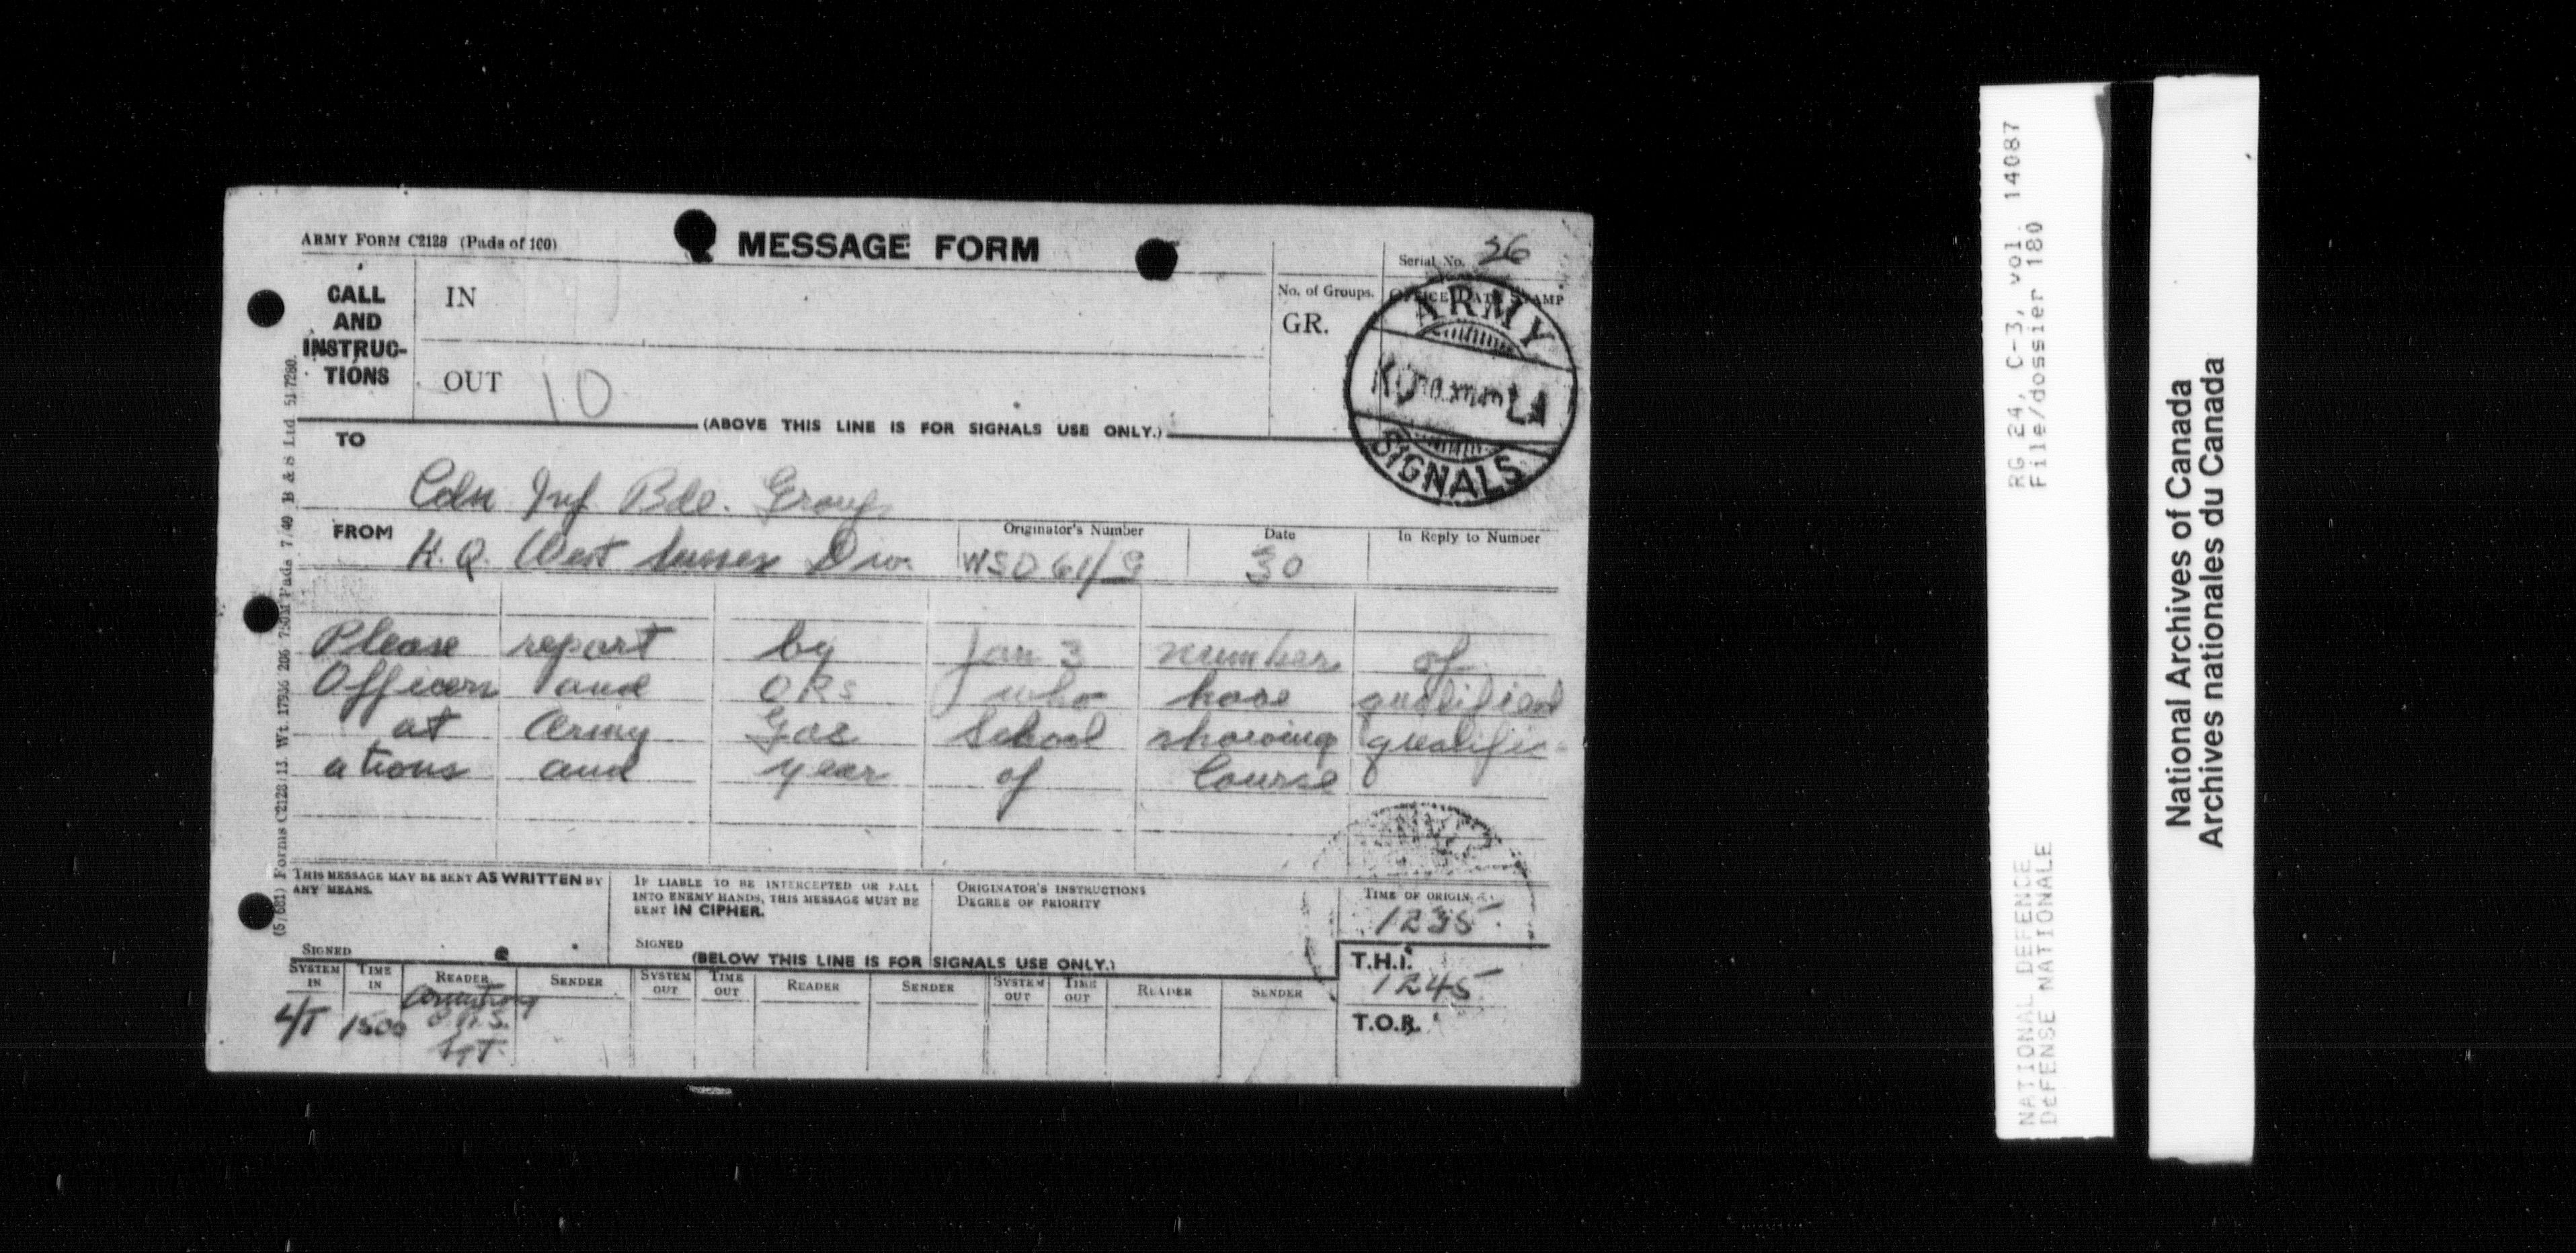 ARMY FORM C2128 (Pads of 100)
MESSAGE FORM
Serial No. 36
CALL AND INSTRUC-TIONS
IN
No. of Groups.
GR.
OFFICE DATE STAMP
ARMY
SIGNALS
OUT 10
(ABOVE THIS LINE IS FOR SIGNALS USE ONLY.)
TO
Cdn Inf Bde. Group
FROM H.Q. West Sussex Div.
Originator's Number
WSD 61/G
Date
30
In Reply to Number
Please report by Jan 3 number of
Officers and ORs who have qualified
at Army Gas School showing qualific-
ations and year of Course
THIS MESSAGE MAY BE SENT AS WRITTEN BY
ANY MEANS.
SIGNED
IF LIABLE TO BE INTERCEPTED OR FALL
INTO ENEMY HANDS, THIS MESSAGE MUST BE
SENT IN CIPHER.
SIGNED
ORIGINATOR'S INSTRUCTIONS
DEGREE OF PRIORITY
TIME OF ORIGIN
1235
(BELOW THIS LINE IS FOR SIGNALS USE ONLY.)
T.H.I.
1245
T.O.R.
SYSTEM IN TIME IN READER SENDER SYSTEM OUT TIME OUT READER SENDER SYSTEM OUT TIME OUT READER SENDER
L/T 1500 Armstrong
(5/681) Forms C2128/13. Wt. 17936 206 750M Pads 7/40 B & S Ltd. 51 7280.
RG 24, C-3, vol. 14087
File/dossier 180
NATIONAL DEFENCE
DéFENSE NATIONALE
National Archives of Canada
Archives nationales du Canada